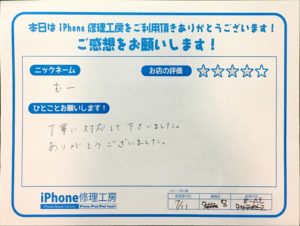 本日は iPhone 修理工房をご利用頂きありがとうございます!
ご感想をお願いします!
ニックネーム
むー
お店の評価
☆☆☆☆☆
ひとことお願いします!
丁寧に対応して下さいました。
ありがとうございました。
iPhone修理工房
7/11